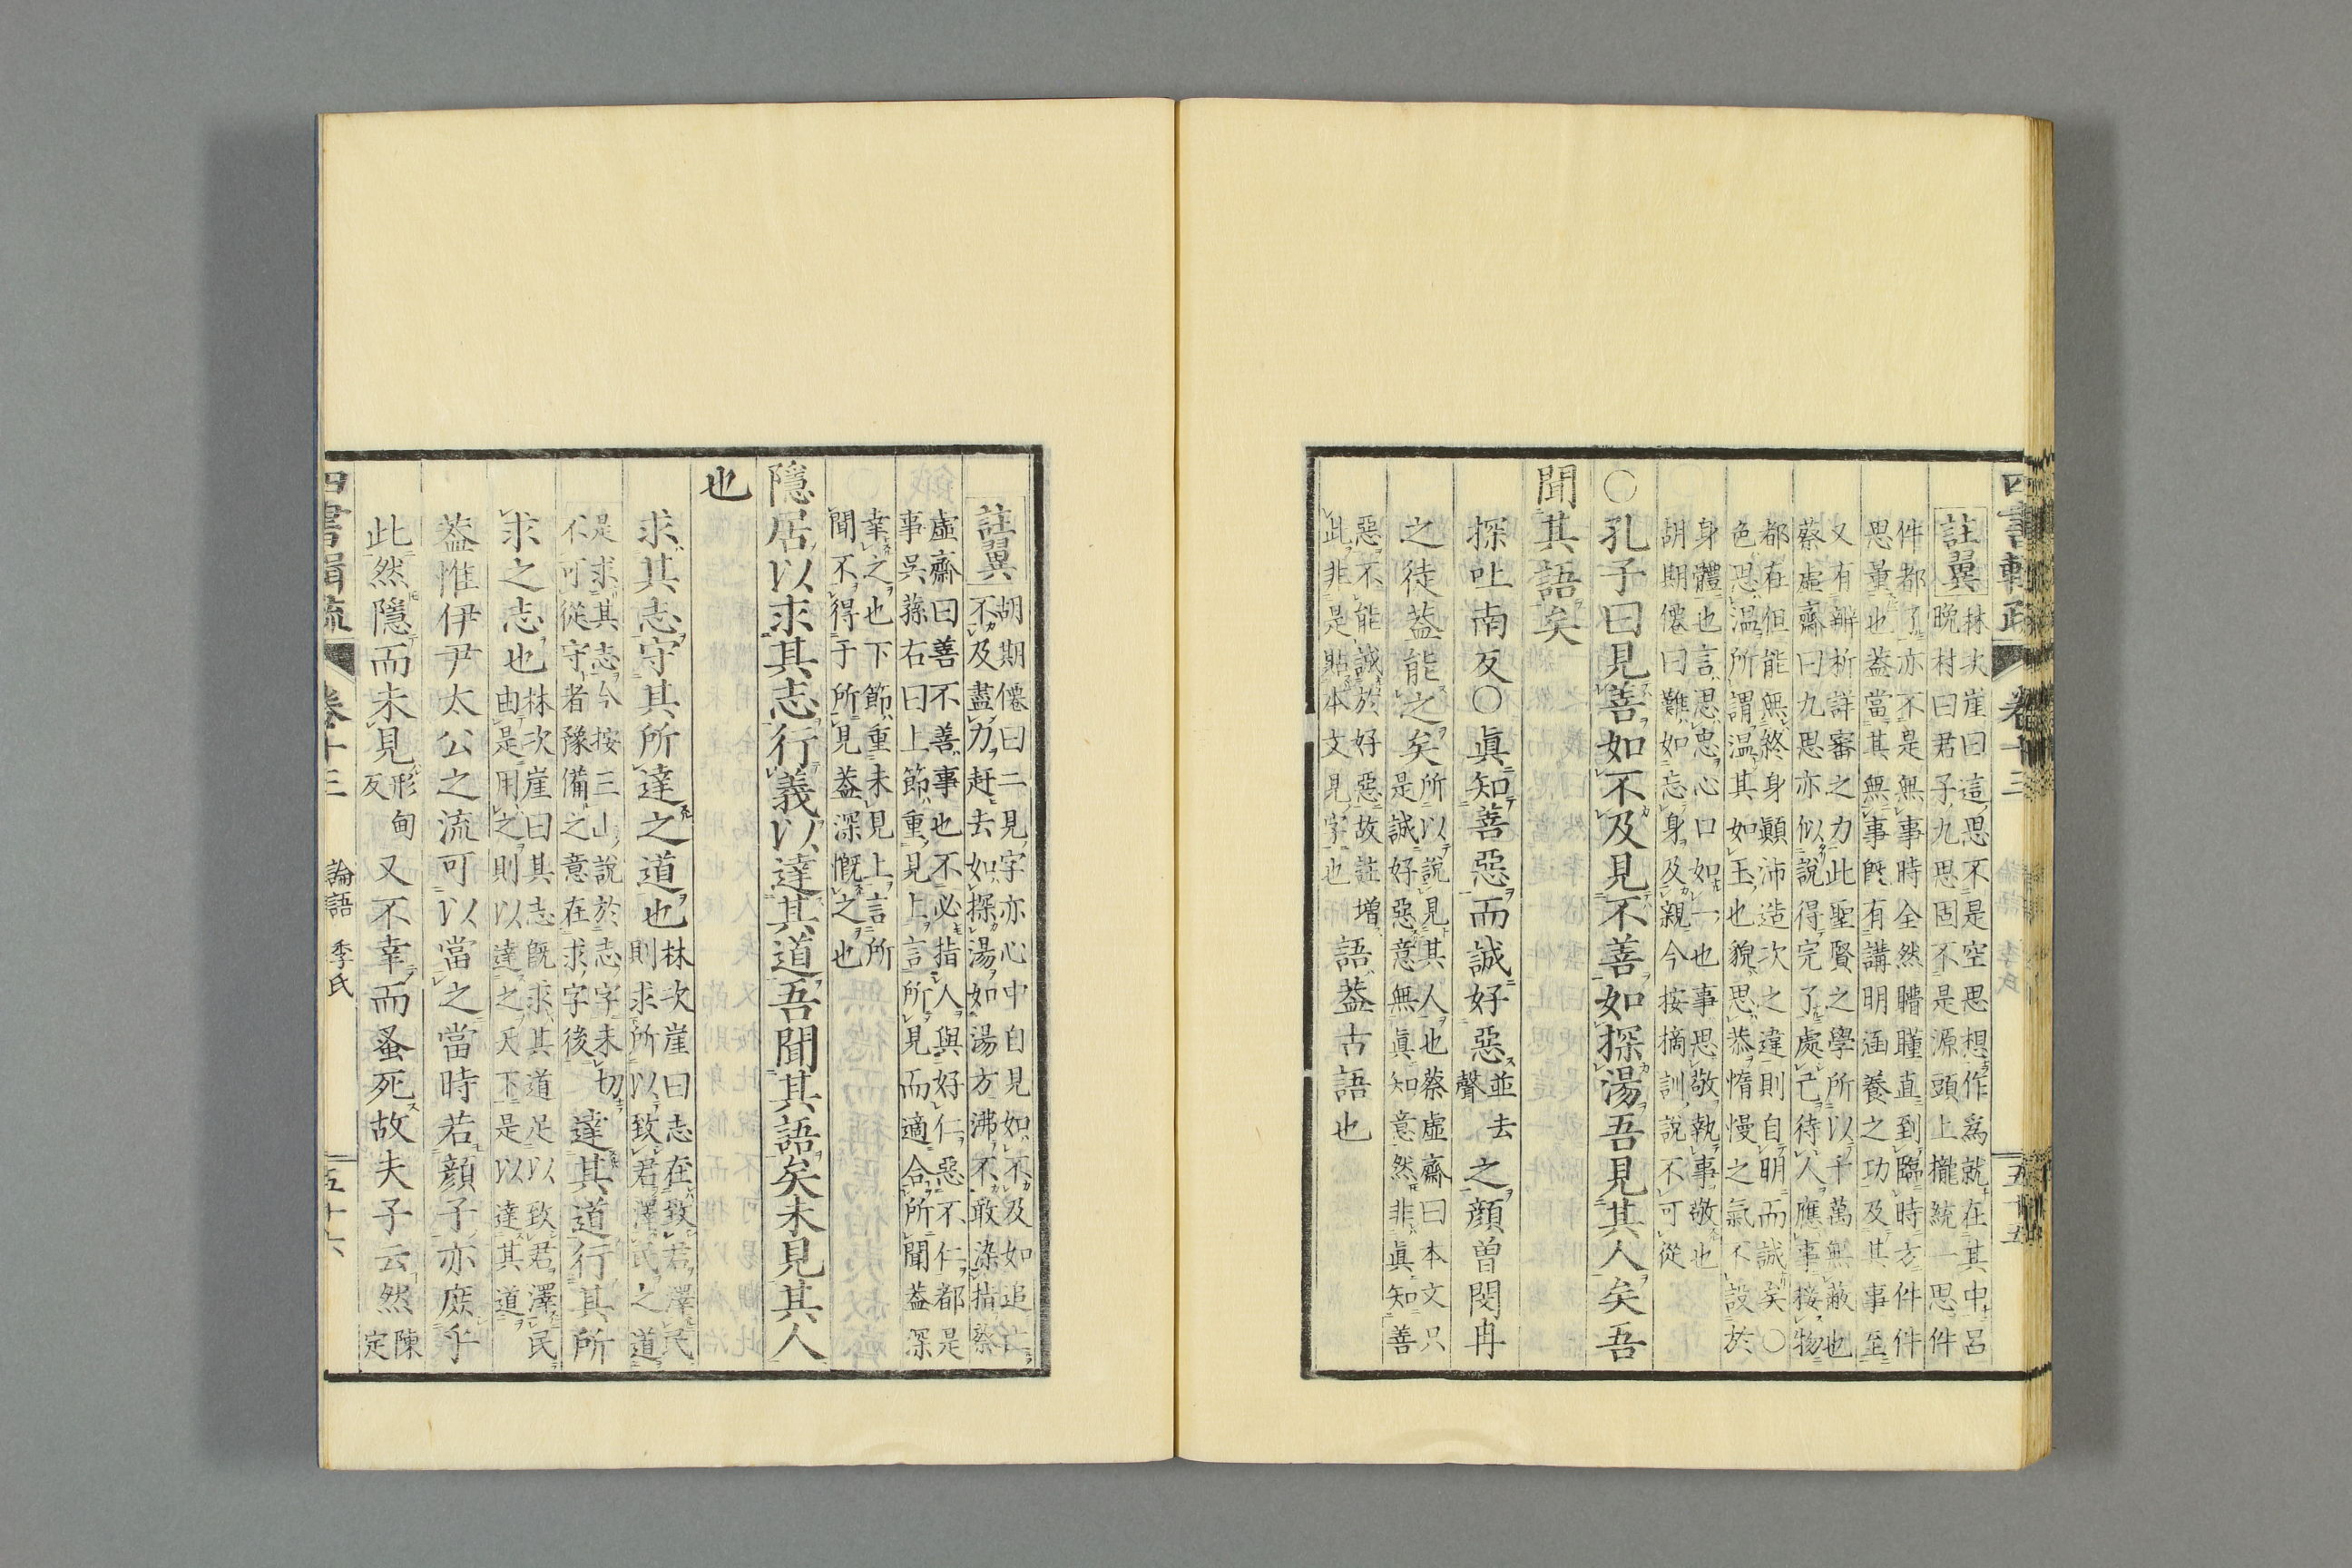 註翼
林次崖曰這思不是空思想作爲就在其中呂
晩村曰君子九思固不是源頭上攏統一思件
件都了亦不是無事時全然瞢瞳直到臨時方件件
思量也葢當其無事旣有講明涵養之功及其事至
又有辨析詳審之力此聖賢之學所以千萬無蔽也
蔡虛齋曰九思亦似說得完了處己待人應事接物
都在但能無終身顚沛造次之違則自明而誠矣〇
色思溫所謂溫其如玉也貌思恭惰慢之氣不設於
身體也言思忠心口如一也事思敬執事敬也
胡期僊曰難如忘身及親今按摘訓說不可從
〇孔子曰見善如不及見不善如探湯吾見其人矣吾
聞其語矣
探吐南反〇眞知善惡而誠好惡並去聲之顏曾閔冉
之徒葢能之矣所以說見其人也蔡虛齋曰本文只
是誠好惡意無眞知意然非眞知善
惡不能誠於好惡故註增語葢古語也
此非是貼本文見字也
四書輯疏 卷十三 五十五
註翼
胡期僊曰二見字亦心中自見如不及如追亡
不及盡力赶去如探湯如湯方沸不敢染指蔡
虛齋曰善不善事也不必指人與好仁惡不仁都是
事吳蓀右曰上節重見上言所見而適合所聞葢深
幸之也下節重未見上言所
聞不得于所見葢深慨之也
隱居以求其志行義以達其道吾聞其語矣未見其人
也
求其志守其所達之道也林次崖曰志在致君澤民
則求所以致君澤民之道
是求其志今按三山說於志字未切
不可從守者豫備之意在求字後達其道行其所
求之志也林次崖曰其志旣求其道足以致君澤民
由是用之則以達之天下是以達其道
葢惟伊尹太公之流可以當之當時若顏子亦庶乎
此然隱而未見形甸反又不幸而蚤死故夫子云然陳定
四書輯疏 卷十三 論語 季氏 五十六